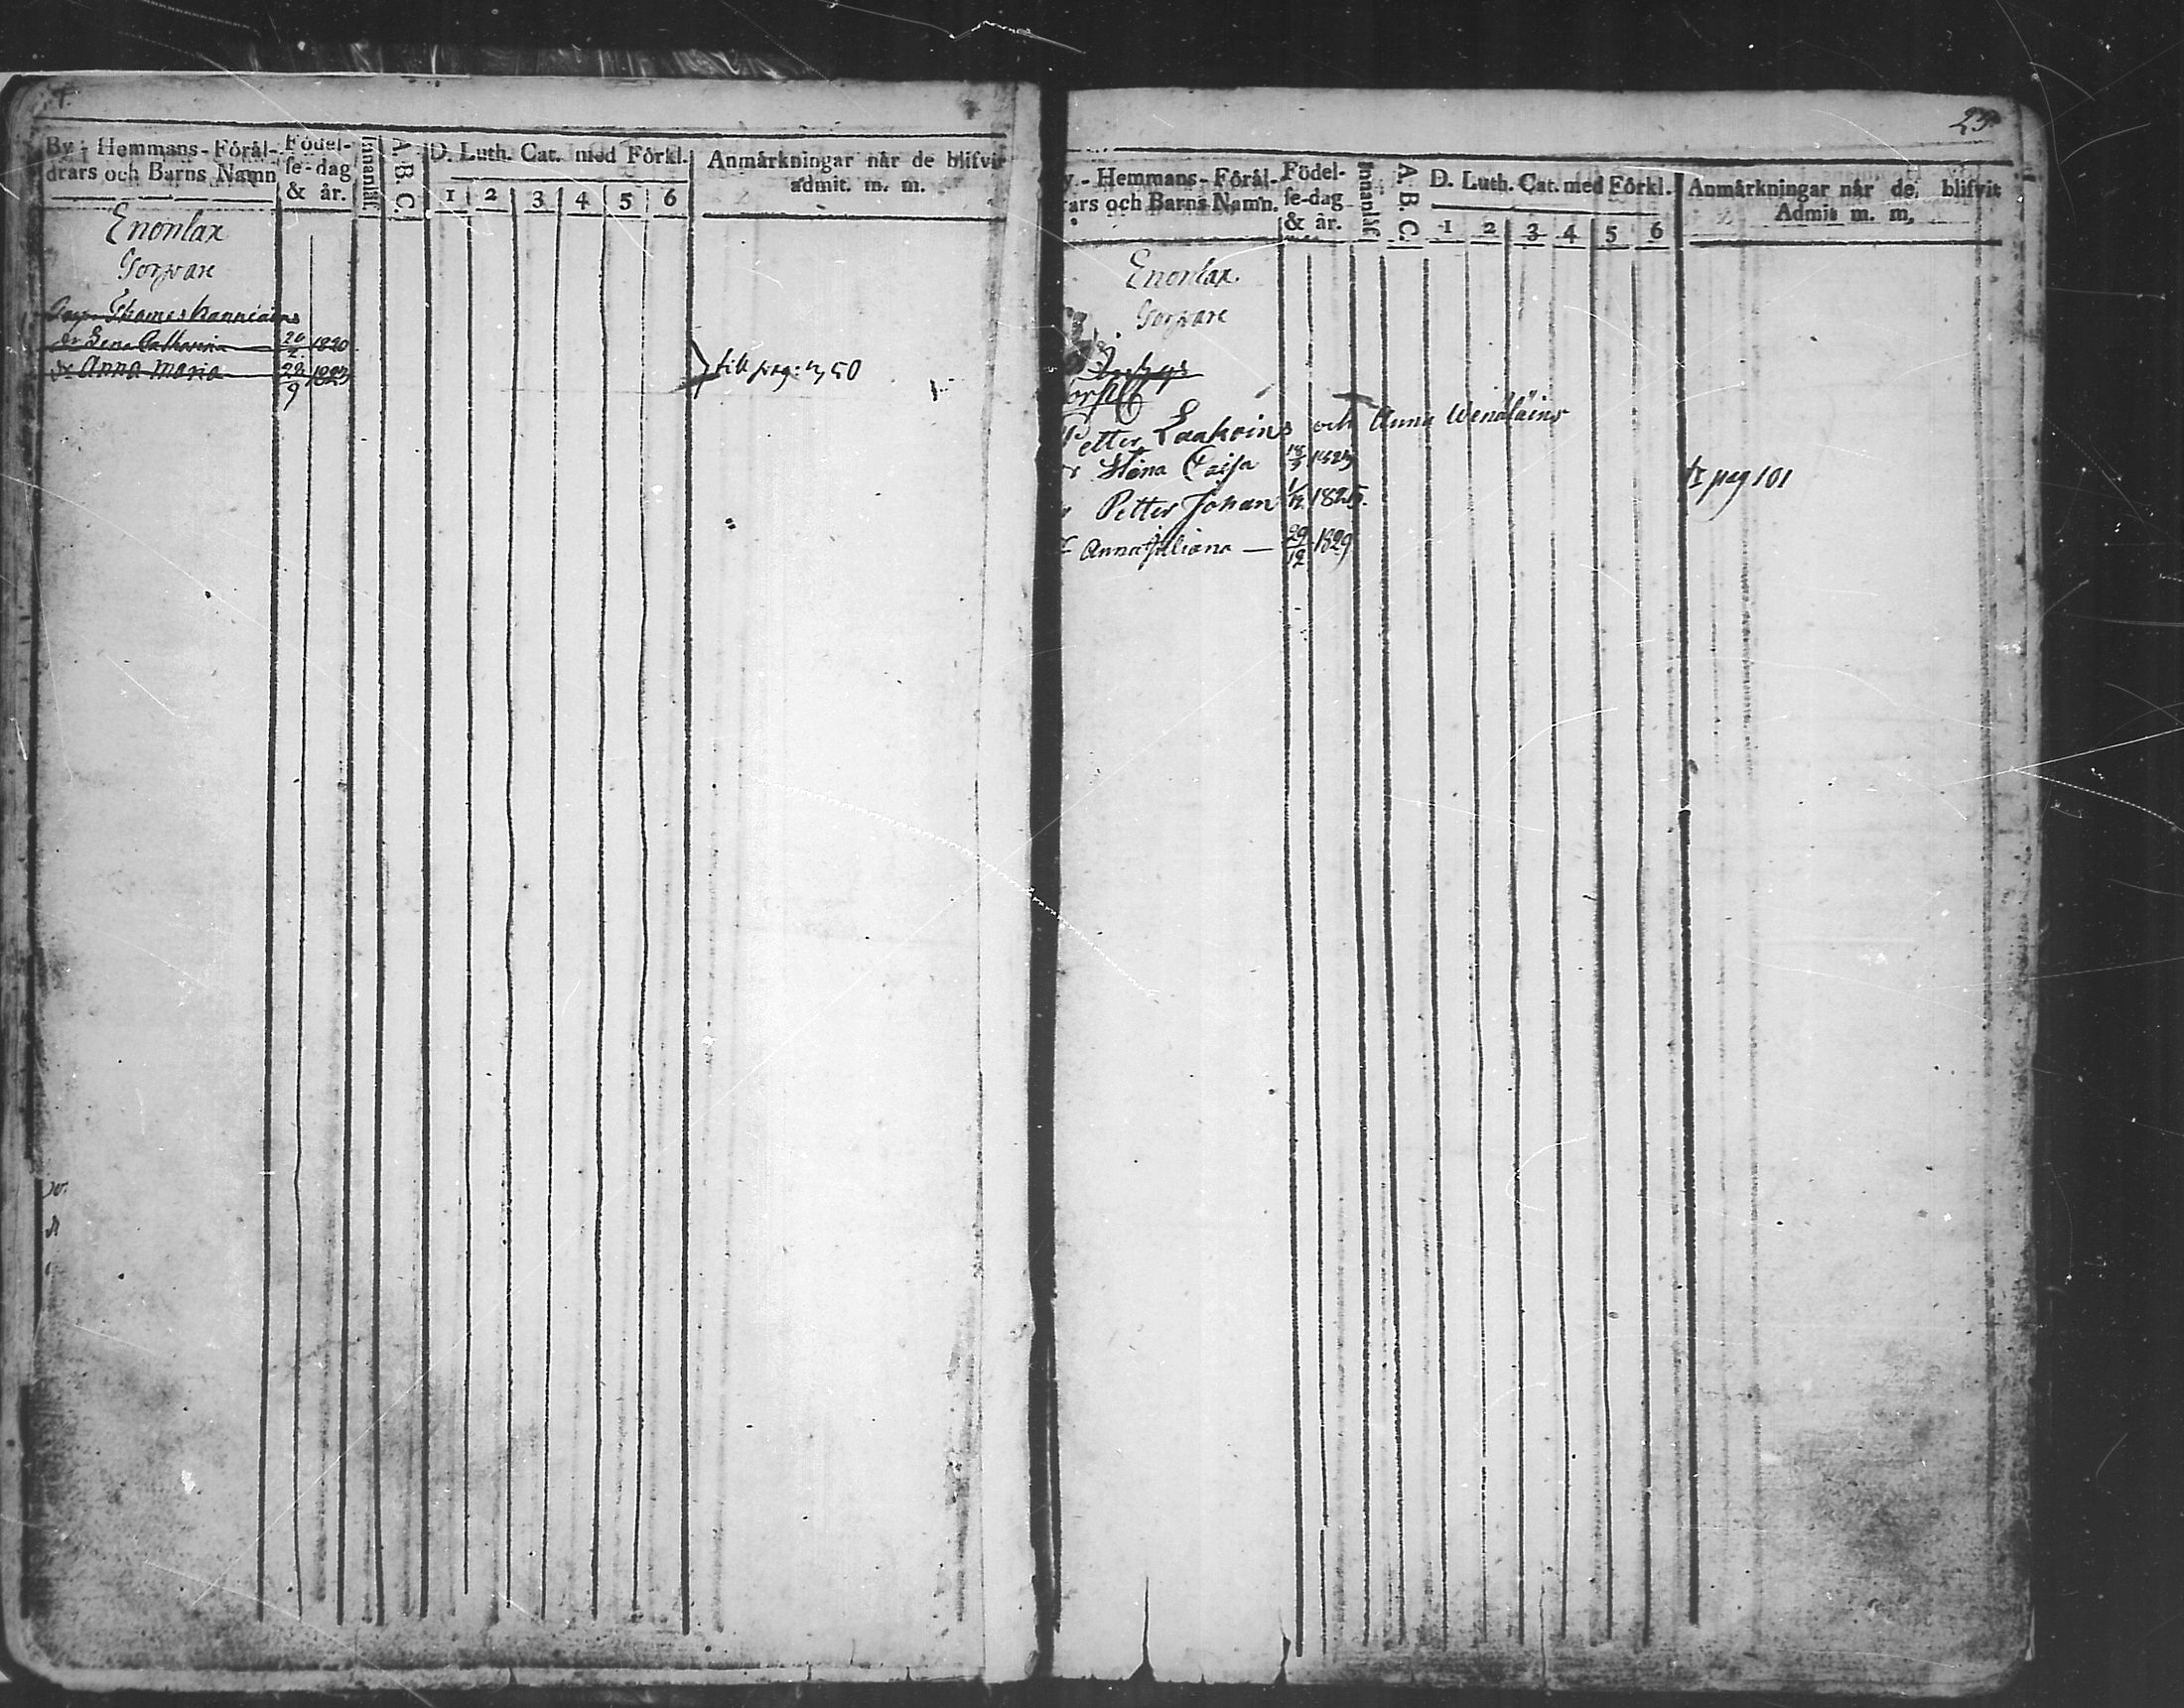 By - Hemmans - Föräl-
drars och Barns Namn
Födel-
se-dag
& år.
Innanläs
A. B. C.
D. Luth. Cat. med Förkl.
1 2 3 4 5 6
Anmärkningar när de blifvit
admit. m. m.
Enonlax
Thomas
dr Lena Catharina 20/2 1820
dr Anna Maria 28/9 1823
till pag:
25
y - Hemmans - Föräl-
rars och Barns Namn.
Födel-
se-dag
& år.
Innanläs
A. B. C.
D. Luth. Cat. med Förkl.
1 2 3 4 5 6
Anmärkningar när de blifvit
Admit m. m.
Enonlax
Petter Laakoins och Anna Wendläins
Stina Caisa 1823
Petter Johan 1/12 1825.
Anna Juliana — 29/12 1829
pag 101